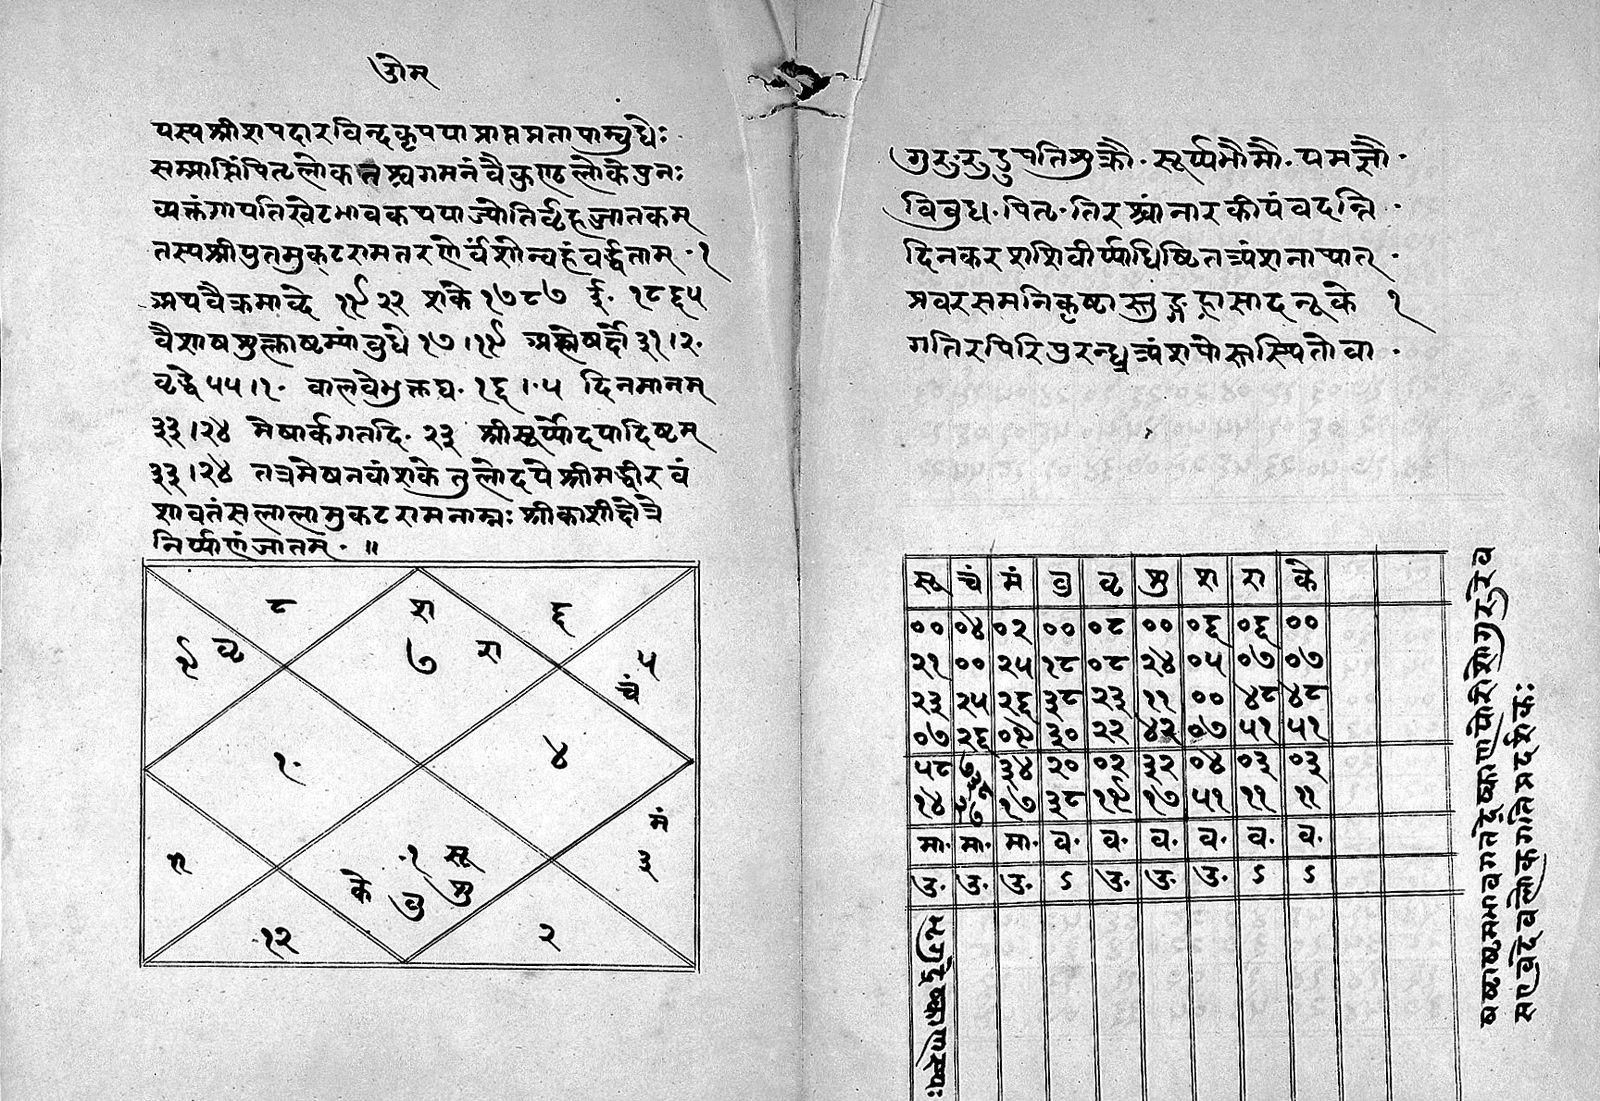 ओम्
यस्य श्रीशपदारविन्दकृपया प्राप्तप्रतापाम्बुधेः
सम्प्राप्तिं पितृलोकतश्च गमनं वैकुण्ठलोके पुनः
व्यक्तं गापतिखेटभावकचयाज्योतिर्व्वृहज्जातकम्
तस्य श्रीयुतमुकटरामतरणेर्वंशोन्वहं वर्द्धताम् ॰ १
अथ वैक्रमाब्दे १९२२ शके १७८७ ई॰ १८६५
वैशाषशुक्लाष्टम्यां बुधे १७।१९ अश्लेषर्क्षे ३१।२॰
वृद्धे ५५।१॰ वालवे भुक्तघ॰ १६।॰५ दिनमानम्
३३।२४ मेषार्कगतदि॰ २३ श्रीसूर्य्योदयादिष्टम्
३३।२४ तत्र मेषनवांशके तुलोदये श्रीमद्धीरवं
शावतंसलालामुकटरामनाम्नः श्रीकाशीक्षेत्रे
निर्य्याणं जातम् ॰ ॥
८ श ६
९ वृ ७ रा ५ चं
१॰ ४
११ ॰१ सू मं ३
के बु शु
१२ २
गुरुरुडुपतिशुक्रौ ॰ सूर्य्यभौमौ ॰ यमज्ञौ ॰
विबुध ॰ पितृ ॰ तिरश्चां नारकीयं वदन्ति
दिनकरशशिवीर्य्याधिष्टितत्र्यंशनाथात् ॰
प्रवरसमनिकृष्टास्तुङ्गह्रासादनूके १
गतिरपि रिपुरन्ध्रत्र्यंशपोस्तस्थितो वा ॰
सू चं मं बु वृ शु श रा के
०० ०४ ०२ ०० ०८ ०० ०६ ०६ ००
२१ ०० २५ १८ ०८ २४ ०५ ०७ ०७
२३ २५ २६ ३८ २३ ११ ०० ४८ ४८
०७ २६ ०९ ३० २२ ४२ ०७ ५१ ५१
५८ ३४ २० ०२ ३२ ०४ ०३ ०३
१४ १७ ३८ १९ १७ ५१ ११ ११
मा॰ मा॰ मा॰ व॰ व॰ व॰ व॰ व॰ व॰
उ॰ उ॰ उ॰ ऽ उ॰ उ॰ उ॰ ऽ ऽ
षष्ठाष्टमभावगतद्रेष्काणयोरीशो गुरुरेव
सएवोदेवलोकगतिप्रदर्शकः